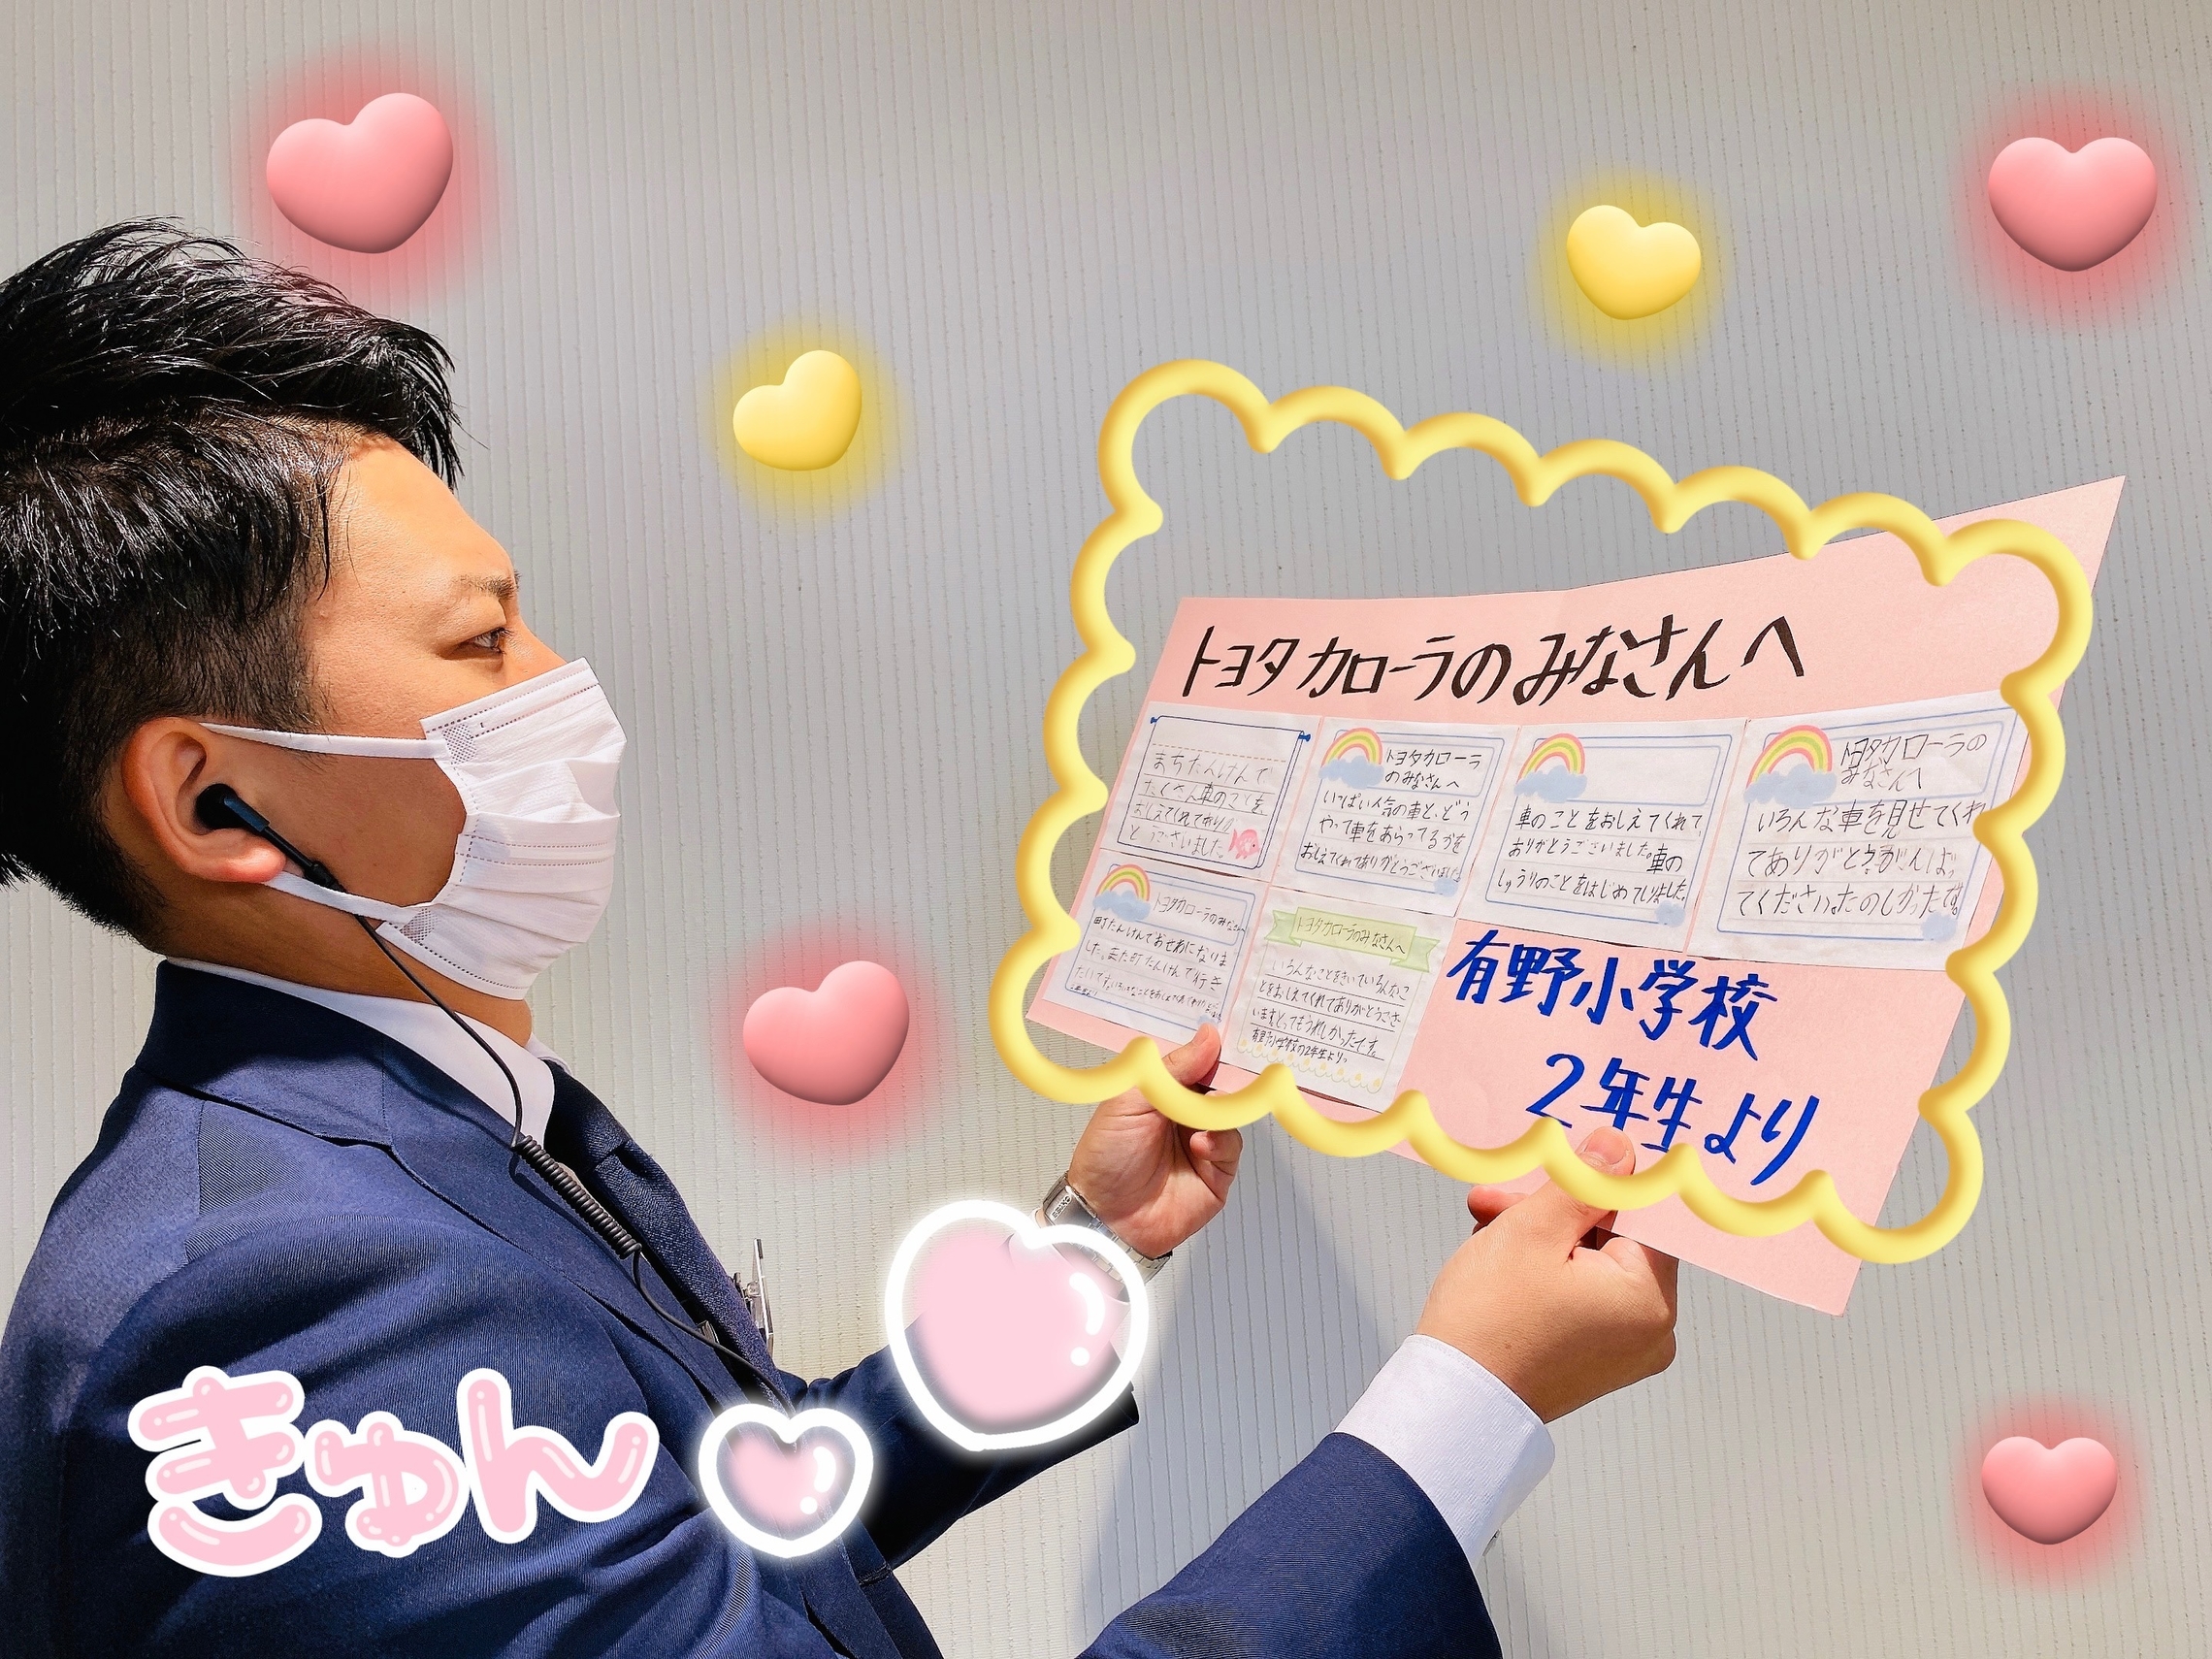 トヨタカローラのみなさんへ
まちたんけんで
たくさん車のことを、
おしえてくれてありが
とうございました。
トヨタカローラ
のみなさんへ
いっぱい人気の車と、どう
やって車をあらってるかを
おしえてくれてありがとうございました
車のことをおしえてくれて、
ありがとうございました。車の
しゅうりのことをはじめてしりました。
トヨタカローラの
みなさんへ
いろんな車を見せてくれ
てありがとう。がんばっ
てください。たのしかったです。
トヨタカローラのみなさんへ
町たんけんでおせわになりま
した。また町たんけんで行き
たいです。
トヨタカローラのみなさんへ
いろんなことをきいていろんなこ
とをおしえてくれてありがとうござ
います。とってもうれしかったです。
有野小学校の2年生より。
有野小学校
2年生より
きゅん